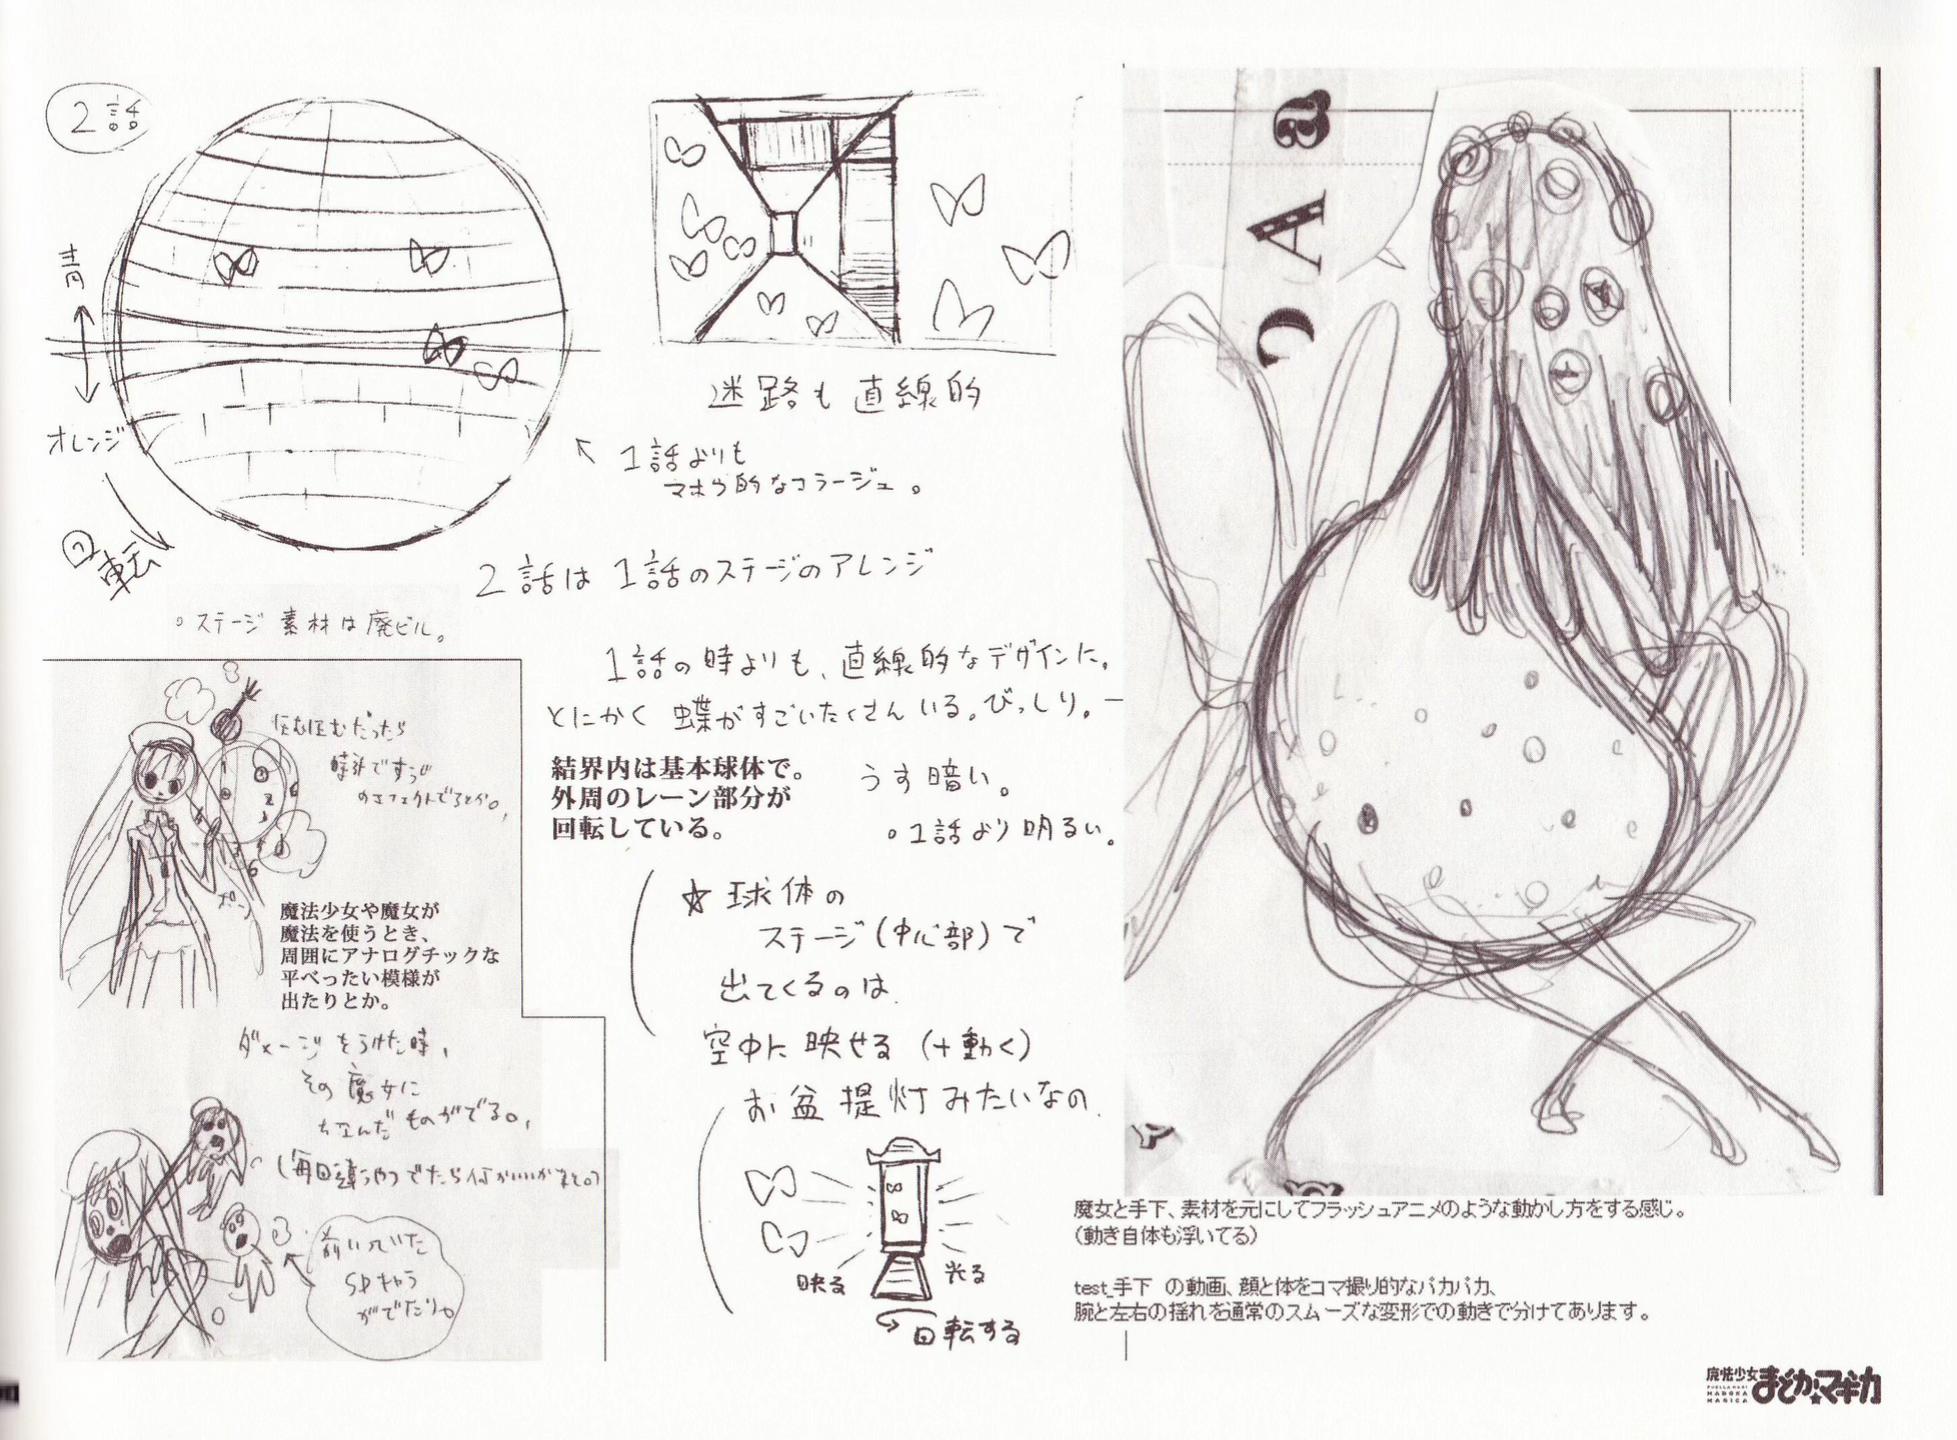 2話
青
オレンジ
回転
。ステージ素材は廃ビル。
迷路も直線的
1話よりも
マホウ的なコラージュ。
2話は1話のステージのアレンジ
1話の時よりも、直線的なデザインに。
とにかく蝶がすごいたくさんいる。びっしり。
結界内は基本球体で。
外周のレーン部分が
回転している。
うす暗い。
。1話より明るい。
☆球体の
ステージ(中心部)で
出てくるのは
空中に映せる(+動く)
お盆提灯みたいなの
映る
光る
回転する
魔法少女や魔女が
魔法を使うとき、
周囲にアナログチックな
平べったい模様が
出たりとか。
ダメージをうけた時、
その魔女に
ちなんだものがでる。
前いっていた
SPキャラ
がでたり。
a
A
C
魔女と手下、素材を元にしてフラッシュアニメのような動かし方をする感じ。
(動き自体も浮いてる)
test_手下 の動画、顔と体をコマ撮り的なパカパカ、
腕と左右の揺れを通常のスムーズな変形での動きで分けてあります。
魔法少女
まどか★マギカ
PUELLA MAGI
MADOKA
MAGICA